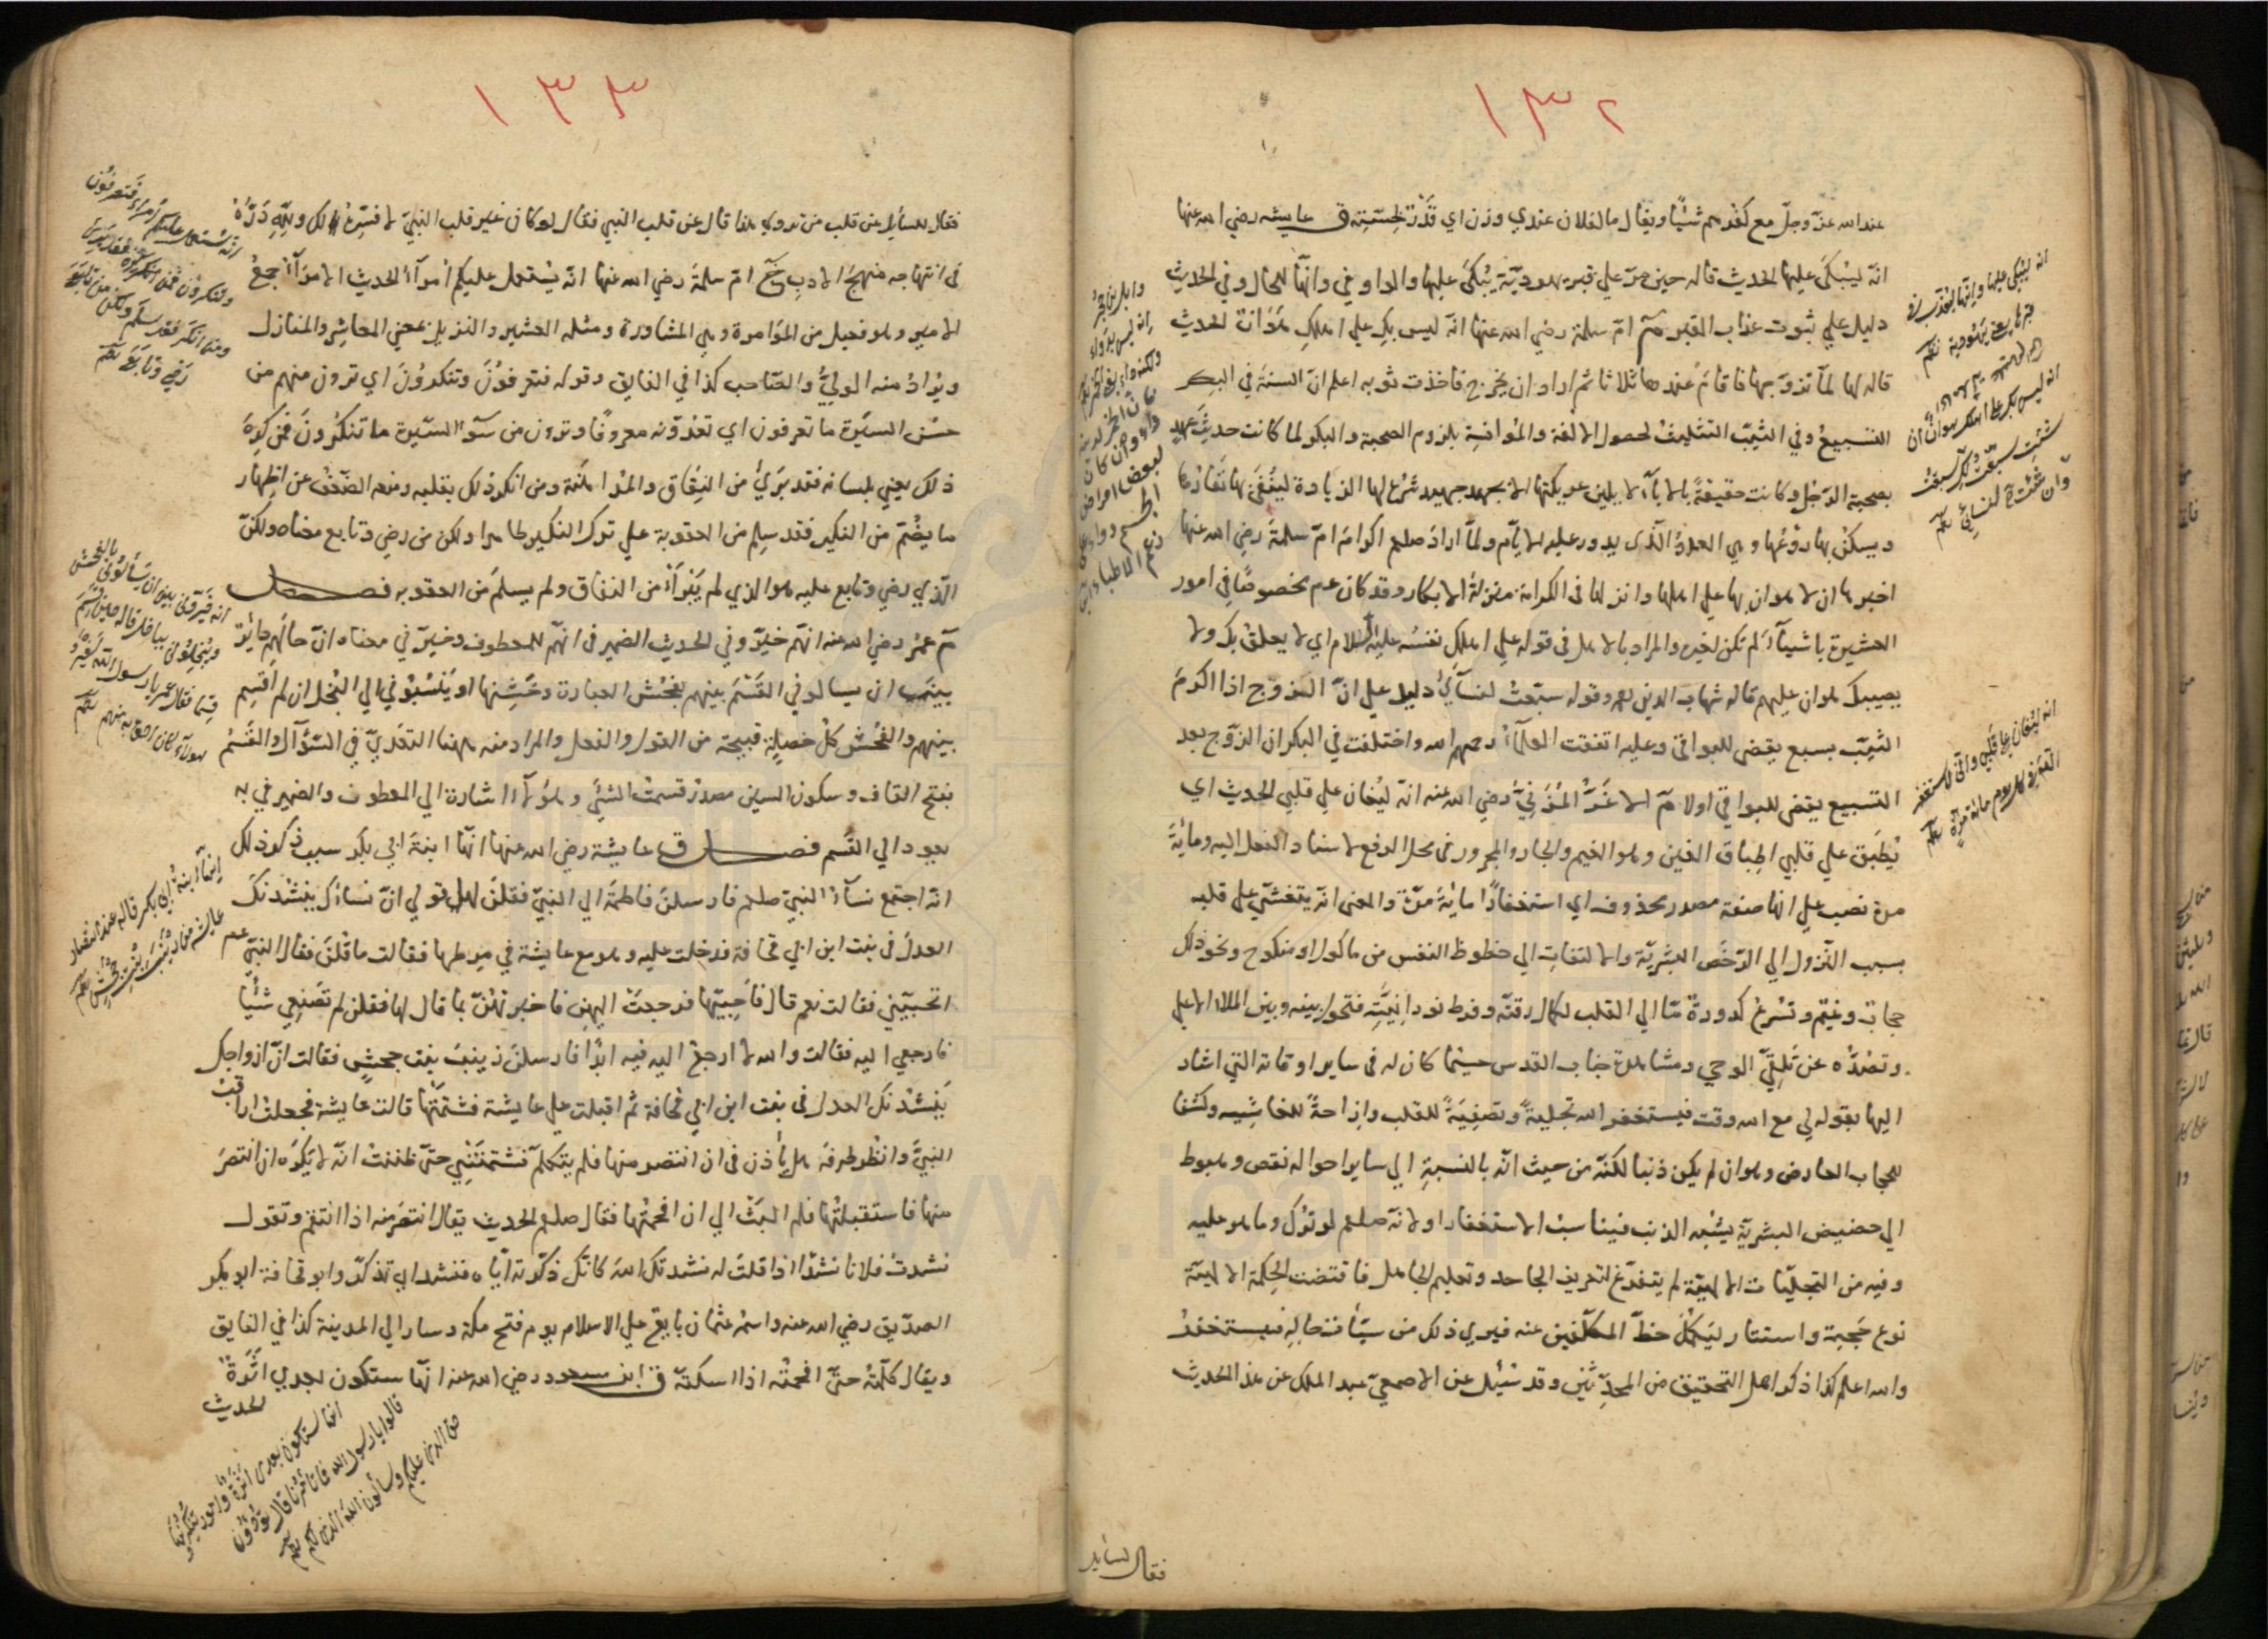 ١٣٢
عند الله عزّ وجلّ مع كفرهم شيئًا ويقال ما لفلان عندي وزن اي قدر لخسّته ق عايشه رضي الله عنها
انّه ليبكى عليها الحديث قاله حين مرّ علي قبر يهوديّة يُبْكَى عليها والواو في وانّها للحال وفي الحديث
دليل علي ثبوت عذاب القبر م امّ سلمة رضي الله عنها انه ليس بكِ علي اهلكِ هَوَانٌ الحديث
قاله لها لمّا تزوّجها فاقام عندها ثلاثا ثم اراد ان يخرج فاخذت ثوبه اعلم انّ السنة في البكر
التسبيع وفي الثيّب التثليث لحصول الالفة والمؤانسة بلزوم الصحبة والبكر لما كانت حديثَ عهدٍ
بصحبة الرّجل وكانت حقيقةً بالاباء لا يلين عريكتها الا بجهد جهيد شرع لها الزيادة لينفى بها نفارها
ويسكن بها روعُها وهي العدد الّذى يدور عليه الايّام ولمّا ارادَ صلعم اكرامَ امّ سلمةَ رضي الله عنها
اخبرها ان لا هوان بها علي اهلها وانزلها فى الكرامة منزلة الابكار وقد كان عم مخصوصًا في امور
العشيرة باشياء لم تكن لغيره والمراد بالاهل فى قوله علي اهلكِ نفسُه عليه السلام اي لا يعلق بك ولا
يصيبك هوان عليهم قاله شهاب الدين وقوله سبّعتُ لنسآئي دليل علي انّ الزوج اذا اكرمَ
الثيّب بسبع يقضى للبواقى وعليه اتفقت العلمآءُ رحمهم الله واختلفت في البكر ان الزوج بعد
التسبيع يقضى للبواقي اولا م الاغَرُّ المُزَنيّ رضي الله عنه انّه ليُغان علي قلبي الحديث اي
يُطبَق علي قلبي اطباق الغين وهو الغيم والجار والمجرور فى محل الرفع لاسناد الفعل اليه ومائةَ
مرة نصب علي انها صفة مصدر محذوف اي استغفارًا مائةَ مرّة والمعنى انه يتغشّي علي قلبه
بسبب النّزول الي الرّخص البشريّة والالتفات الي حظوظ النفس من ماكول او منكوح ونحو ذلك
حجاب وغيم وتسرع كدورة مّا الي القلب لكمال رقته وفرط نورانيّته فتحول بينه وبين الملاء الاعلي
وتصدّه عن تلقّي الوحي ومشاهدة جناب القدس حسبما كان له فى ساير اوقاته التي اشار
اليها بقوله لي مع الله وقت فيستغفر الله تجليةً وتصفيةً للقلب وازاحةً للغاشيه وكشفا
للحجاب العارض وهو وان لم يكن ذنبا لكنّه من حيث انّه بالنسبة الي ساير احواله نقص وهبوط
الي حضيض البشريّة يشبه الذنب فيناسبُ الاستغفار ولانه صلعم لو تُرك وما هو عليه
وفيه من التجلّيات الالهيّة لم يتفرّغ لتعريف الجاحد وتعليم الجاهل فاقتضت الحكمة الالهيّة
نوع حَجْبة واستتار ليكمّل حظّ المكلّفين عنه فيري ذلك من سيّأت حاله فيستغفرُ
والله اعلم كذا ذكر اهل التحقيق من المحدّثين وقد سُئل عن الاصمعيّ عبد الملك عن هذا الحديث
انه ليبكى عليها وانّها لتعذّب في
قبرها يعني يهودية
انه ليس بك على اهلك هوان ان
شئت سبّعت لك وان سبّعت
لك سبّعت لنسائي
انه ليغان على قلبي واني لاستغفر
الله في اليوم مائة مرّة
فقال لسايل
١٣٣
فقال للسايل عن قلب من تروي هذا قال عن قلب النبي فقال لو كان غير قلب النبيّ لافسّرهُ لك ولِلّهِ دَرُّهُ
فى انتهاجه منهجَ الادب م امّ سلمةَ رضي الله عنها انّه يُستعمل عليكم اُمرآءُ الحديث الامرَآءُ جمعُ
الامير وهو فعيل من المؤامرة وهي المشاورة ومثله العشير والنزيل بمعني المعاشر والمنازل
ويُرادُ منه الوليُّ والصّاحب كذا في الفايق وقوله فتعرفونَ وتنكرونَ اي ترون منهم من
حسن السيرة ما تعرفون اي تعدّونه معروفًا وترون من سوء السّيرة ما تنكرونَ فمن كرهَ
ذلك يعني بلسانه فقد بَرِيَ من النِفاق والمُداهنة ومن انكر ذلك بقلبه ومنعه الضّعف عن اظهار
ما يضمر من النكير فقد سلِم من العقوبة علي ترك النكير ظاهرا ولكن من رضي وتابع معناه ولكنّ
الّذي رضي وتابع عليه هو الذي لم يَبْرَأ من النفاق ولم يسلمَ من العقوبه فصل
م عمرُ رضي الله عنه انّهم خيّروني الحديث الضمير فى انّهم للمعطوف وخيّروني معناه انّ حالهم دائرة
بينَ ان يسالوني القَسْمَ بينهم بفحش العبارة وخشِنها او ينسُبُوني الي البُخل ان لم اَقسِم
بينهم والفُحش كلّ خصلةٍ قبيحة من القول والفعل والمراد منه ههنا التعدّيّ في السّؤال والقَسْمُ
بفتح القاف وسكون السين مصدرُ قسمت الشيّ وهؤلاء اشارة الي المعطوف والضمير في به
يعود الي القَسم فصل ق عايشة رضي الله عنها انّها ابنةُ ابي بكر سبب ذكر ذلك
انّه اجتمع نسآءُ النبيّ صلعم فارسلنَ فاطمةَ الي النبيّ فقلنَ لها قولي انّ نساءَك ينشُدنكَ
العدلَ فى بنت ابن ابي قحافة فدخلت عليه وهو مع عايشة في مِرطها فقالت ما قُلنَ فقال النبيّ عم
اتحبّينني فقالت نعم قال فاَحبّيها فرجعتْ اليهن فاخبرتهنّ بما قال لها فقلن لم تَصنَعِي شَيْئًا
فارجعي اليه فقالت والله لا ارجعُ اليه فيه ابدًا فارسلنَ زينبَ بنتَ جحشٍ فقالت انّ ازواجك
يَنشُدنَكَ العدل فى بنت ابن ابي قحافة ثم اقبلت علي عايشة فشتمتْها قالت عايشة فجعلتُ اراقبُ
النبيَّ وانظر طرفَه هل يأذن فى ان انتصر منها فلم يتكلم فشتمتْنِي حتّى ظننتُ انّه لا يكرَه ان انتصرَ
منها فاستقبلتُها فلم البَثْ الي ان افحمتُها فقال صلعم الحديث يقال انتصَر منه اذا انتقم وتقول
نشدتُ فلانا نشدًا اذا قلتَ له نشدتك اللهَ كانّك ذكّرته ايّاه فنشد اي تذكّر وابو قحافة ابو بكر
الصدّيق رضي الله عنه واسمُه عثمان بايع علي الاسلام يوم فتح مكة وسار الي المدينة كذا في الفايق
ويقال كلّمتُه حتّى افحمتُه اذا اسكتّه ق ابن مسعود رضي الله عنه انّها ستكون بعدي اثرَةٌ
الحديث
انه يستعمل عليكم امراء فتعرفون
وتنكرون فمن كره فقد برئ
ومن انكر فقد سلم ولكن من
رضي وتابع
انه خيّروني بين ان يسألوني بالفحش
او يبخّلوني
انّها ابنة ابي بكر
انها ستكون بعدى اثرة وامور تنكرونها
قالوا يا رسول الله فما تأمرنا قال تؤدون
حق الذى عليكم وسألون الله الذى لكم